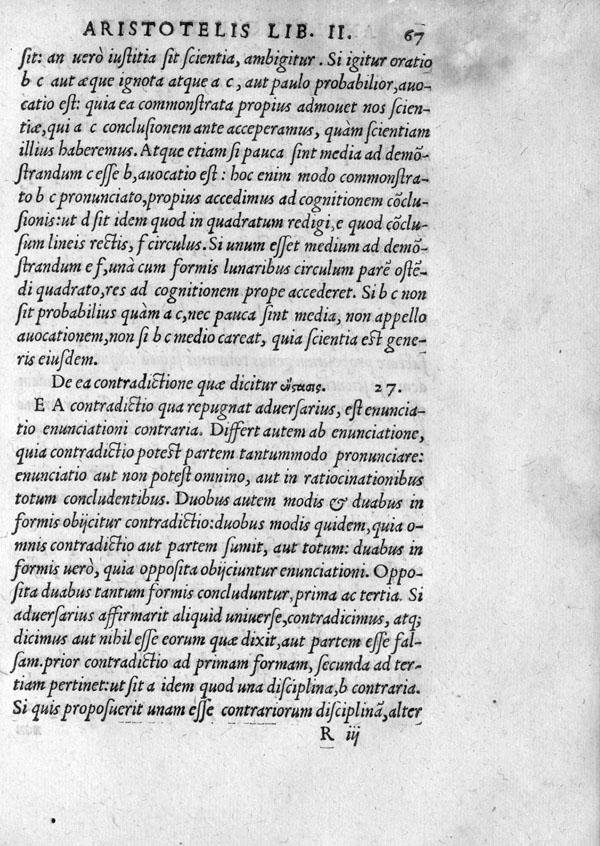 ARISTOTELIS LIB. II. 67
sit: an uerò iustitia sit scientia, ambigitur. Si igitur oratio
b c aut æque ignota atque a c, aut paulo probabilior, auo-
catio est: quia ea commonstrata propius admouet nos scien-
tiæ, qui a c conclusionem ante acceperamus, quàm scientiam
illius haberemus. Atque etiam si pauca sint media ad demõ-
strandum c esse b, auocatio est: hoc enim modo commonstra-
to b c pronunciato, propius accedimus ad cognitionem cõclu-
sionis: ut d sit idem quod in quadratum redigi, e quod cõclu-
sum lineis rectis, f circulus. Si unum esset medium ad demõ-
strandum e f, unà cum formis lunaribus circulum parẽ ostẽ-
di quadrato, res ad cognitionem prope accederet. Si b c non
sit probabilius quàm a c, nec pauca sint media, non appello
auocationem, non si b c medio careat, quia scientia est gene-
ris eiusdem.
De ea contradictione quæ dicitur ἔνστασις. 27.
E A contradictio qua repugnat aduersarius, est enuncia-
tio enunciationi contraria. Differt autem ab enunciatione,
quia contradictio potest partem tantummodo pronunciare:
enunciatio aut non potest omnino, aut in ratiocinationibus
totum concludentibus. Duobus autem modis & duabus in
formis obijcitur contradictio: duobus modis quidem, quia o-
mnis contradictio aut partem sumit, aut totum: duabus in
formis uerò, quia opposita obijciuntur enunciationi. Oppo-
sita duabus tantum formis concluduntur, prima ac tertia. Si
aduersarius affirmarit aliquid uniuerse, contradicimus, atq;
dicimus aut nihil esse eorum quæ dixit, aut partem esse fal-
sam. prior contradictio ad primam formam, secunda ad ter-
tiam pertinet: ut sit a idem quod una disciplina, b contraria.
Si quis proposuerit unam esse contrariorum disciplinã, alter
R iij